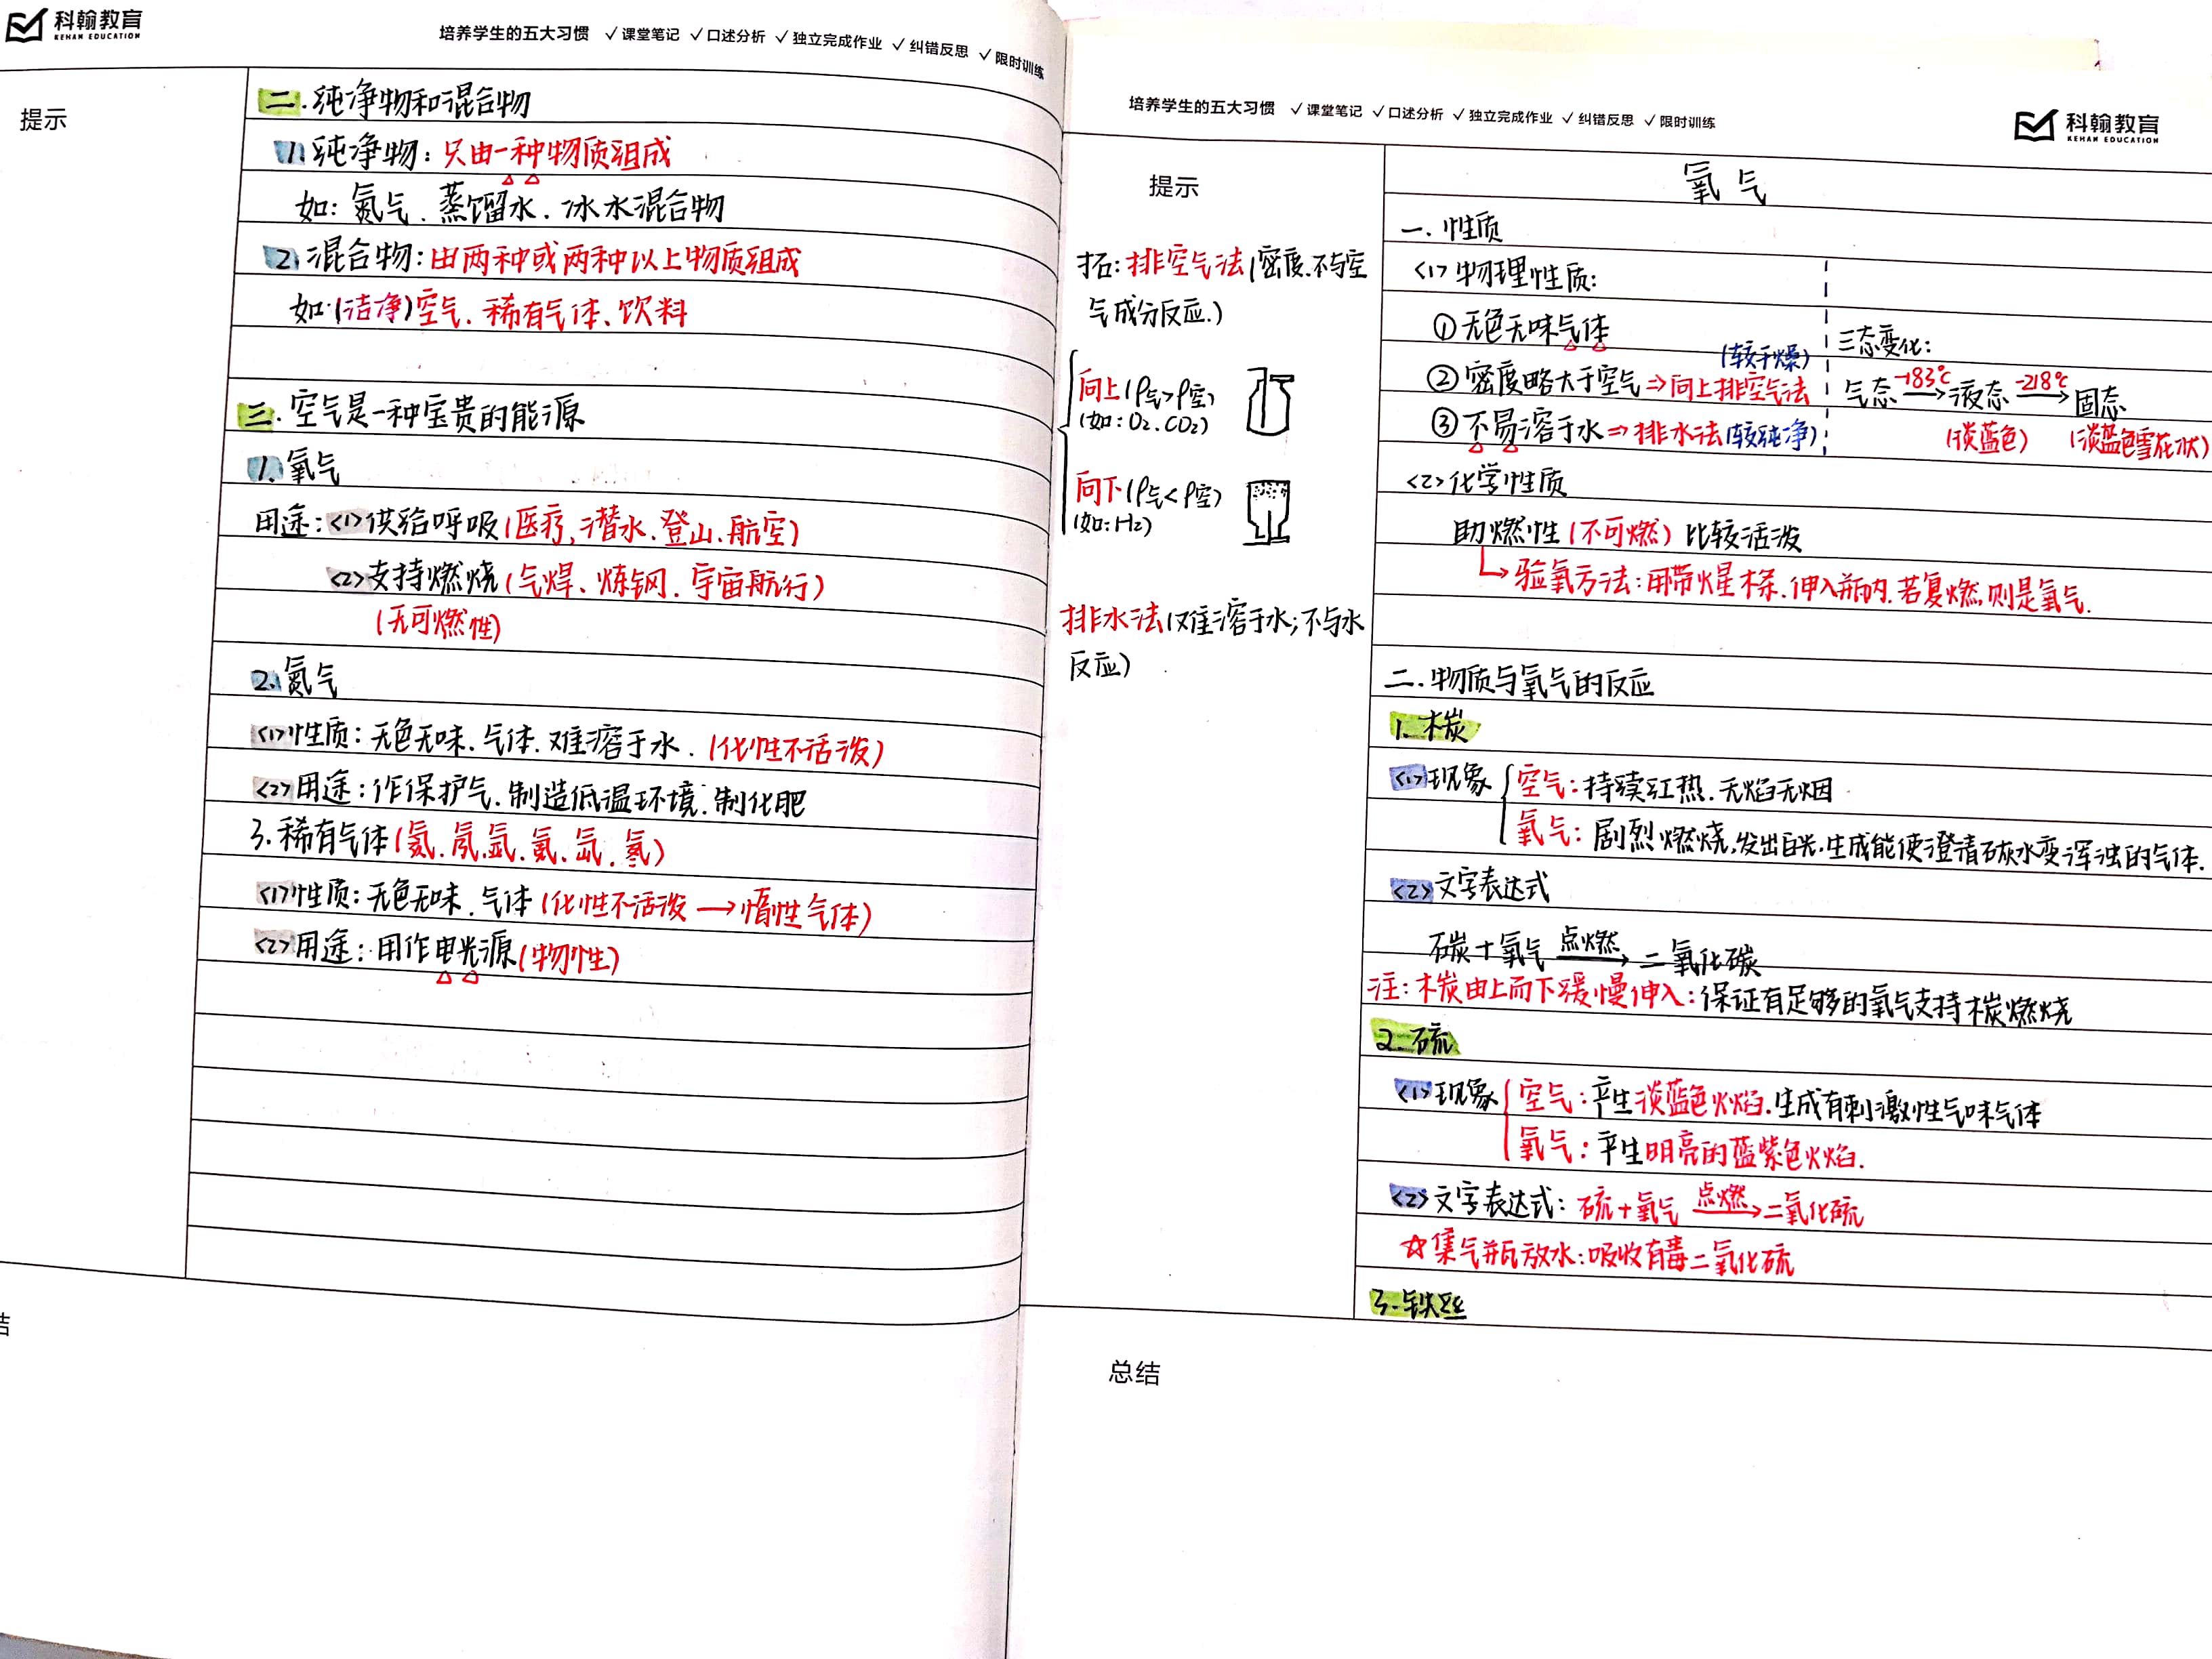 科翰教育
KEHAN EDUCATION
培养学生的五大习惯 ✓课堂笔记 ✓口述分析 ✓独立完成作业 ✓纠错反思 ✓限时训练
提示
二.纯净物和混合物
1.纯净物:只由一种物质组成
如:氮气.蒸馏水.冰水混合物
2.混合物:由两种或两种以上物质组成
如:(洁净)空气.稀有气体、饮料
三.空气是一种宝贵的能源
1.氧气
用途:<1>供给呼吸(医疗,潜水.登山.航空)
<2>支持燃烧(气焊、炼钢.宇宙航行)
(无可燃性)
2.氮气
<1>性质:无色无味.气体.难溶于水.(化性不活泼)
<2>用途:作保护气.制造低温环境.制化肥
3.稀有气体(氦.氖.氩.氪.氙.氡)
<1>性质:无色无味.气体(化性不活泼→惰性气体)
<2>用途:用作电光源(物性)
结
培养学生的五大习惯 ✓课堂笔记 ✓口述分析 ✓独立完成作业 ✓纠错反思 ✓限时训练
科翰教育
KEHAN EDUCATION
提示
拓:排空气法(密度.不与空
气成分反应.)
向上(ρ气>ρ空)
(如:O₂.CO₂)
向下(ρ气<ρ空)
(如:H₂)
排水法(难溶于水;不与水
反应)
氧气
一.性质
<1>物理性质:
①无色无味气体
②密度略大于空气⇒向上排空气法(较干燥)
③不易溶于水⇒排水法(较纯净)
三态变化:
气态 -183℃→ 液态 -218℃→ 固态
(淡蓝色) (淡蓝色雪花状)
<2>化学性质
助燃性(不可燃)比较活泼
↳验氧方法:用带火星木条.伸入瓶内.若复燃,则是氧气.
二.物质与氧气的反应
1.木炭
<1>现象 空气:持续红热.无焰无烟
氧气:剧烈燃烧,发出白光.生成能使澄清石灰水变浑浊的气体.
<2>文字表达式
碳+氧气 点燃→ 二氧化碳
注:木炭由上而下缓慢伸入:保证有足够的氧气支持木炭燃烧
2.硫
<1>现象 空气:产生淡蓝色火焰.生成有刺激性气味气体
氧气:产生明亮的蓝紫色火焰.
<2>文字表达式:硫+氧气 点燃→ 二氧化硫
☆集气瓶放水:吸收有毒二氧化硫
3.铁丝
总结